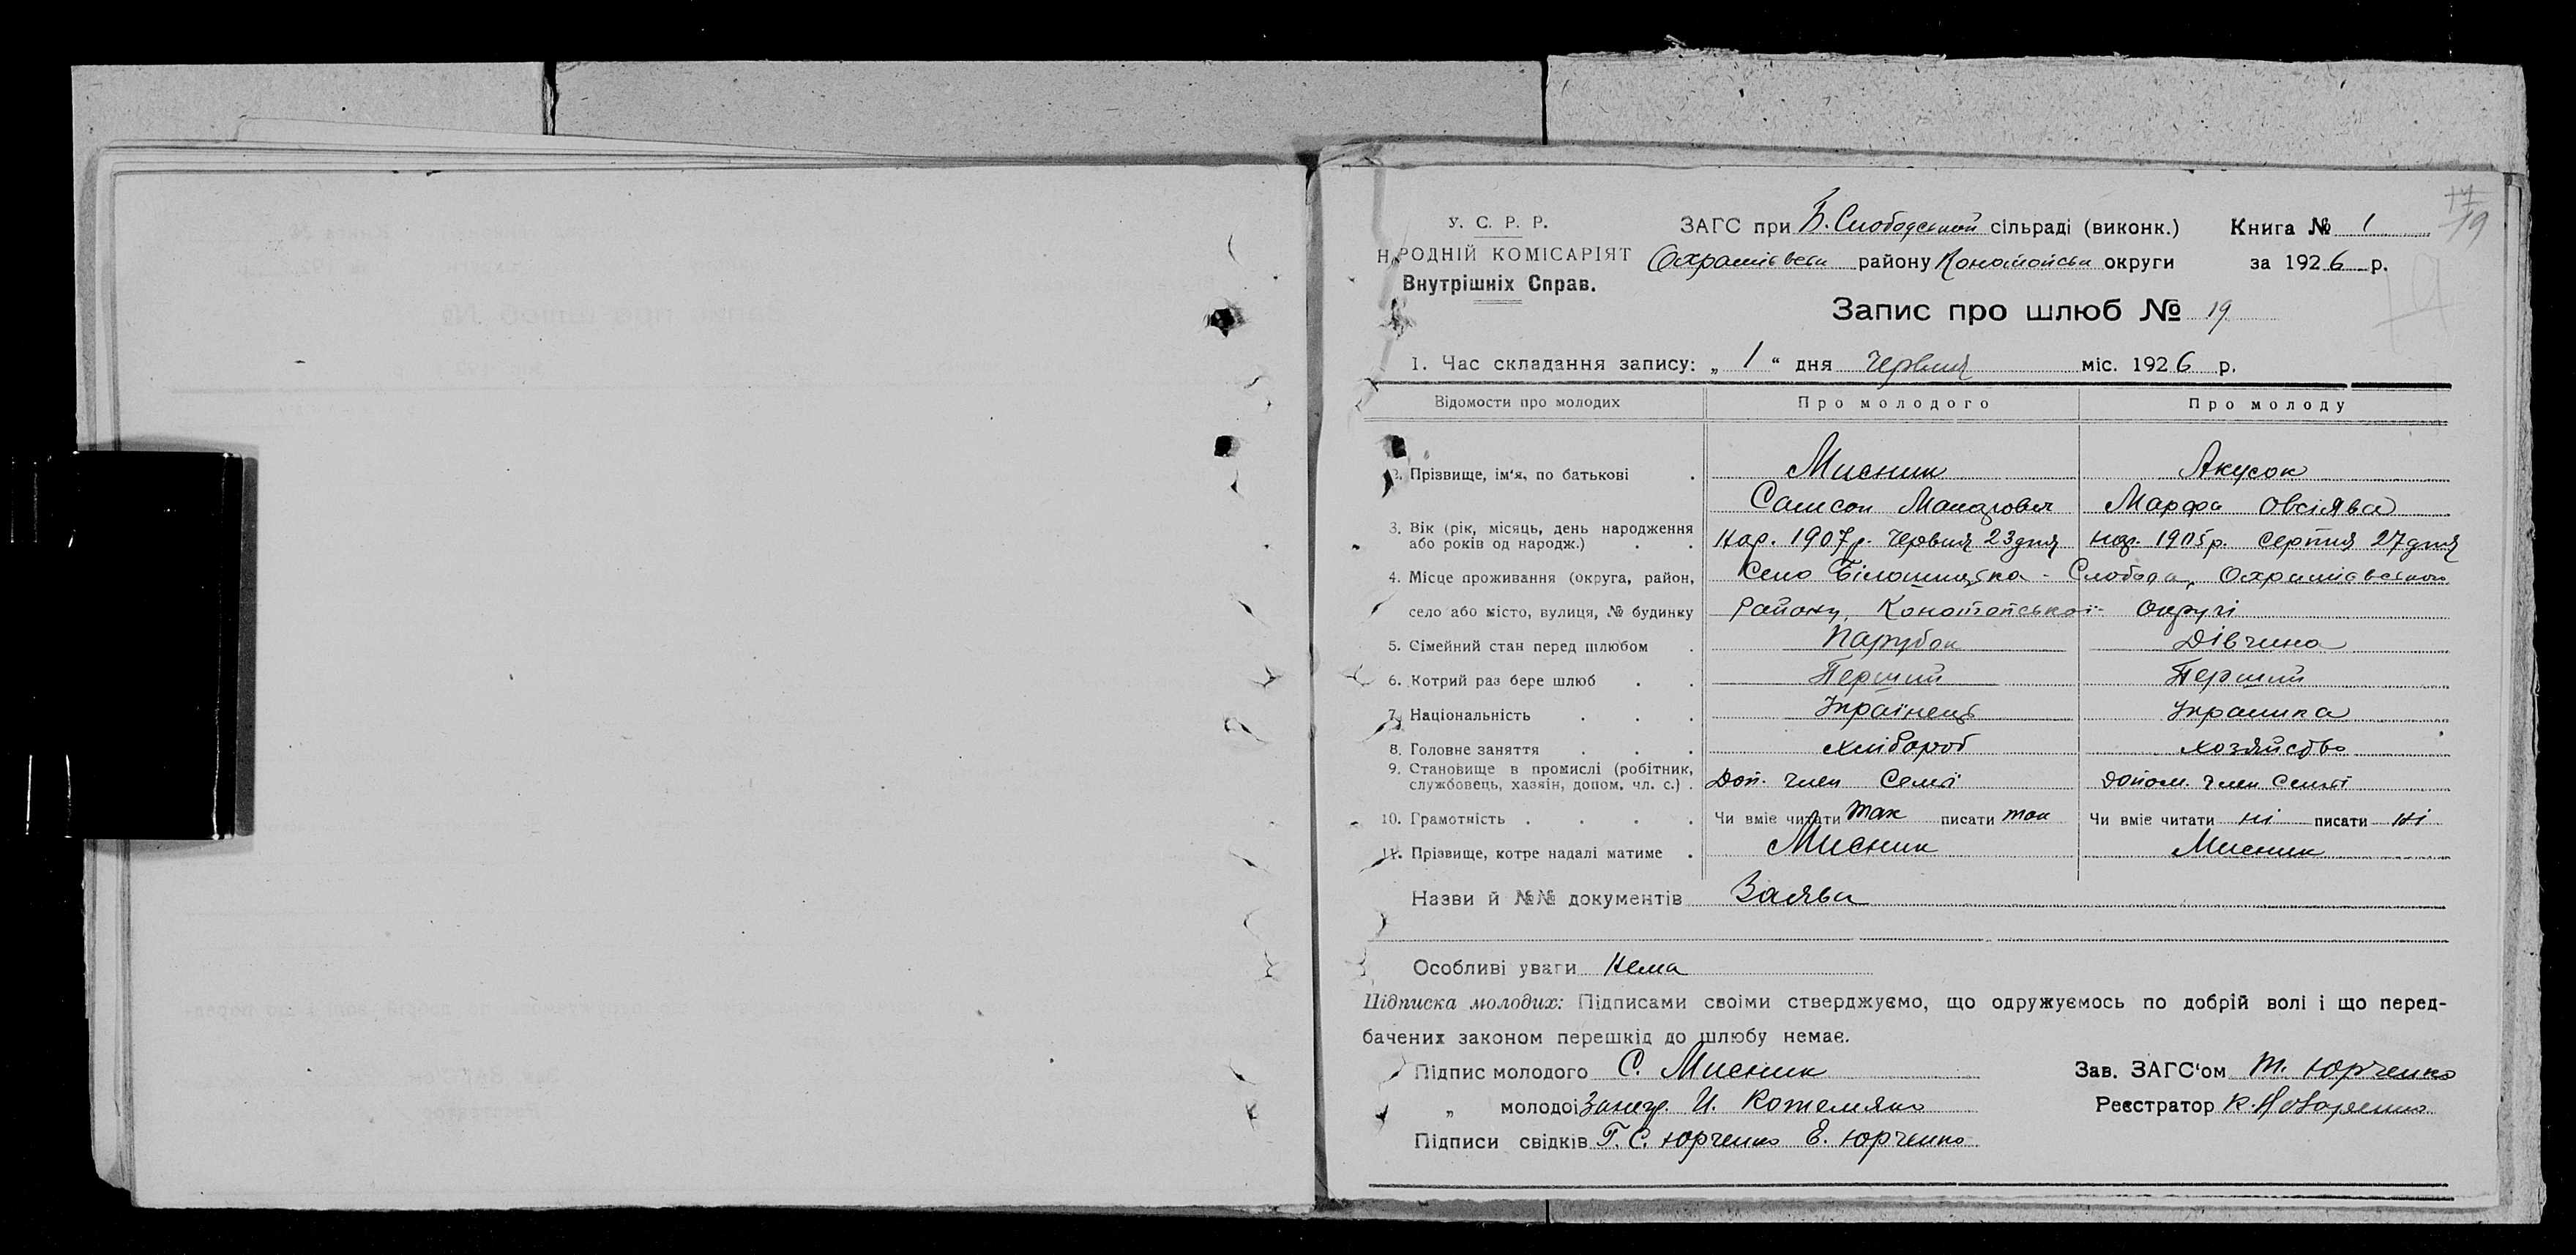 У. С. Р. Р.
НАРОДНІЙ КОМІСАРІЯТ
Внутрішніх Справ.
ЗАГС при Б. Слободській сільраді (виконк.) Книга № 1
17
19
району Конотопськ округи за 1926 р.
19
Запис про шлюб № 19
1. Час складання запису: „ 1 “ дня червня міс. 1926 р.
Відомости про молодих Про молодого Про молоду
2. Прізвище, ім‘я, по батькові . Мисник Акусок
Самсон Марфа
3. Вік (рік, місяць, день народження
або років од народж.) . . Нар. 1907 р. Червня 23 дня нар. 1905 р. Серпня 27 дня
4. Місце проживання (округа, район, Село Білошицька - Слобода,
село або місто, вулиця, № будинку Району, Конотопської Округи
5. Сімейний стан перед шлюбом . Парубок Дівчина
6. Котрий раз бере шлюб . . Перший Перший
7. Національність . . . Українець Украинка
8. Головне заняття . . . хлібороб хозяйство
9. Становище в промислі (робітник,
службовець, хазяін, допом. чл. с.) . Доп. член Семї допом. член семї
10. Грамотність . . . . Чи вміє читати так писати так Чи вміє читати ні писати ні
11. Прізвище, котре надалі матиме . Мисник Мисник
Назви й №№ документів Заява
Особливі уваги Нема
Підписка молодих: Підписами своіми стверджуємо, що одружуємось по добрій волі і що перед-
бачених законом перешкід до шлюбу немає.
Підпис молодого С. Мисник Зав. ЗАГС‘ом Т. Юрченко
„ молодоі И. Котемяко Реєстратор К.
Підписи свідків Г. С. Юрченко Е. Юрченко